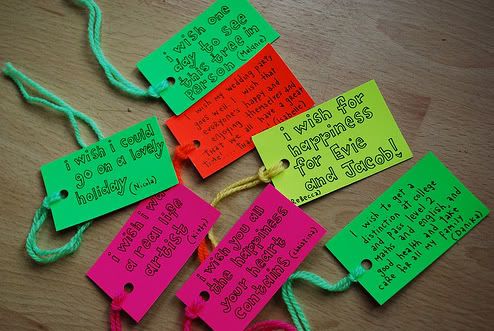 i wish one
day to see
this tree in
person (Melanie)
i wish my wedding party
goes well. I wish that
everyone's happy and
enjoying themselves and
that we all have a great
i wish for
happiness
for Evie
and Jacob!
(Rebecca)
i wish i could
go on a lovely
holiday (Nicola)
i wish i w
a real life
artist
i wish you all
the happiness
your heart
contains
I wish to get a
distinction at college
and pass level 2
maths and english, and
good health and
cake for all my family
(Danika)